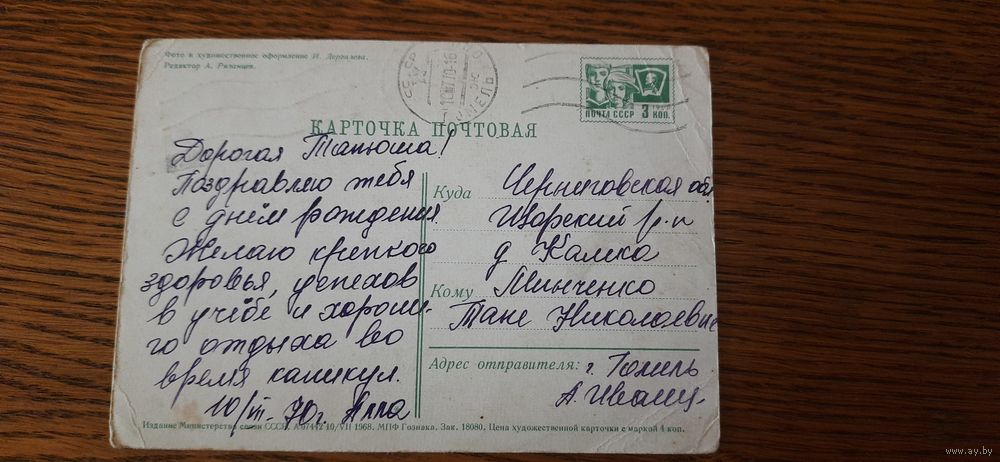 Фото и художественное оформление И. Дергилева.
Редактор А. Рязанцев.
СССР
ПОЧТА СССР 3 КОП.
КАРТОЧКА ПОЧТОВАЯ
Дорогая Танюша!
Поздравляю тебя
с днём рождения.
Желаю крепкого
здоровья, успехов
в учёбе и хороше-
го отдыха во
время каникул.
10/III-70г. Алла
Куда Черниговская обл
Щорский р-н
д Камка
Кому Минченко
Тане Николаевне
Адрес отправителя: г. Гомель
А. Иванц-
Издание Министерства связи СССР. А 07442 10/VII 1968. МПФ Гознака. Зак. 18080. Цена художественной карточки с маркой 4 коп.
www.ay.by